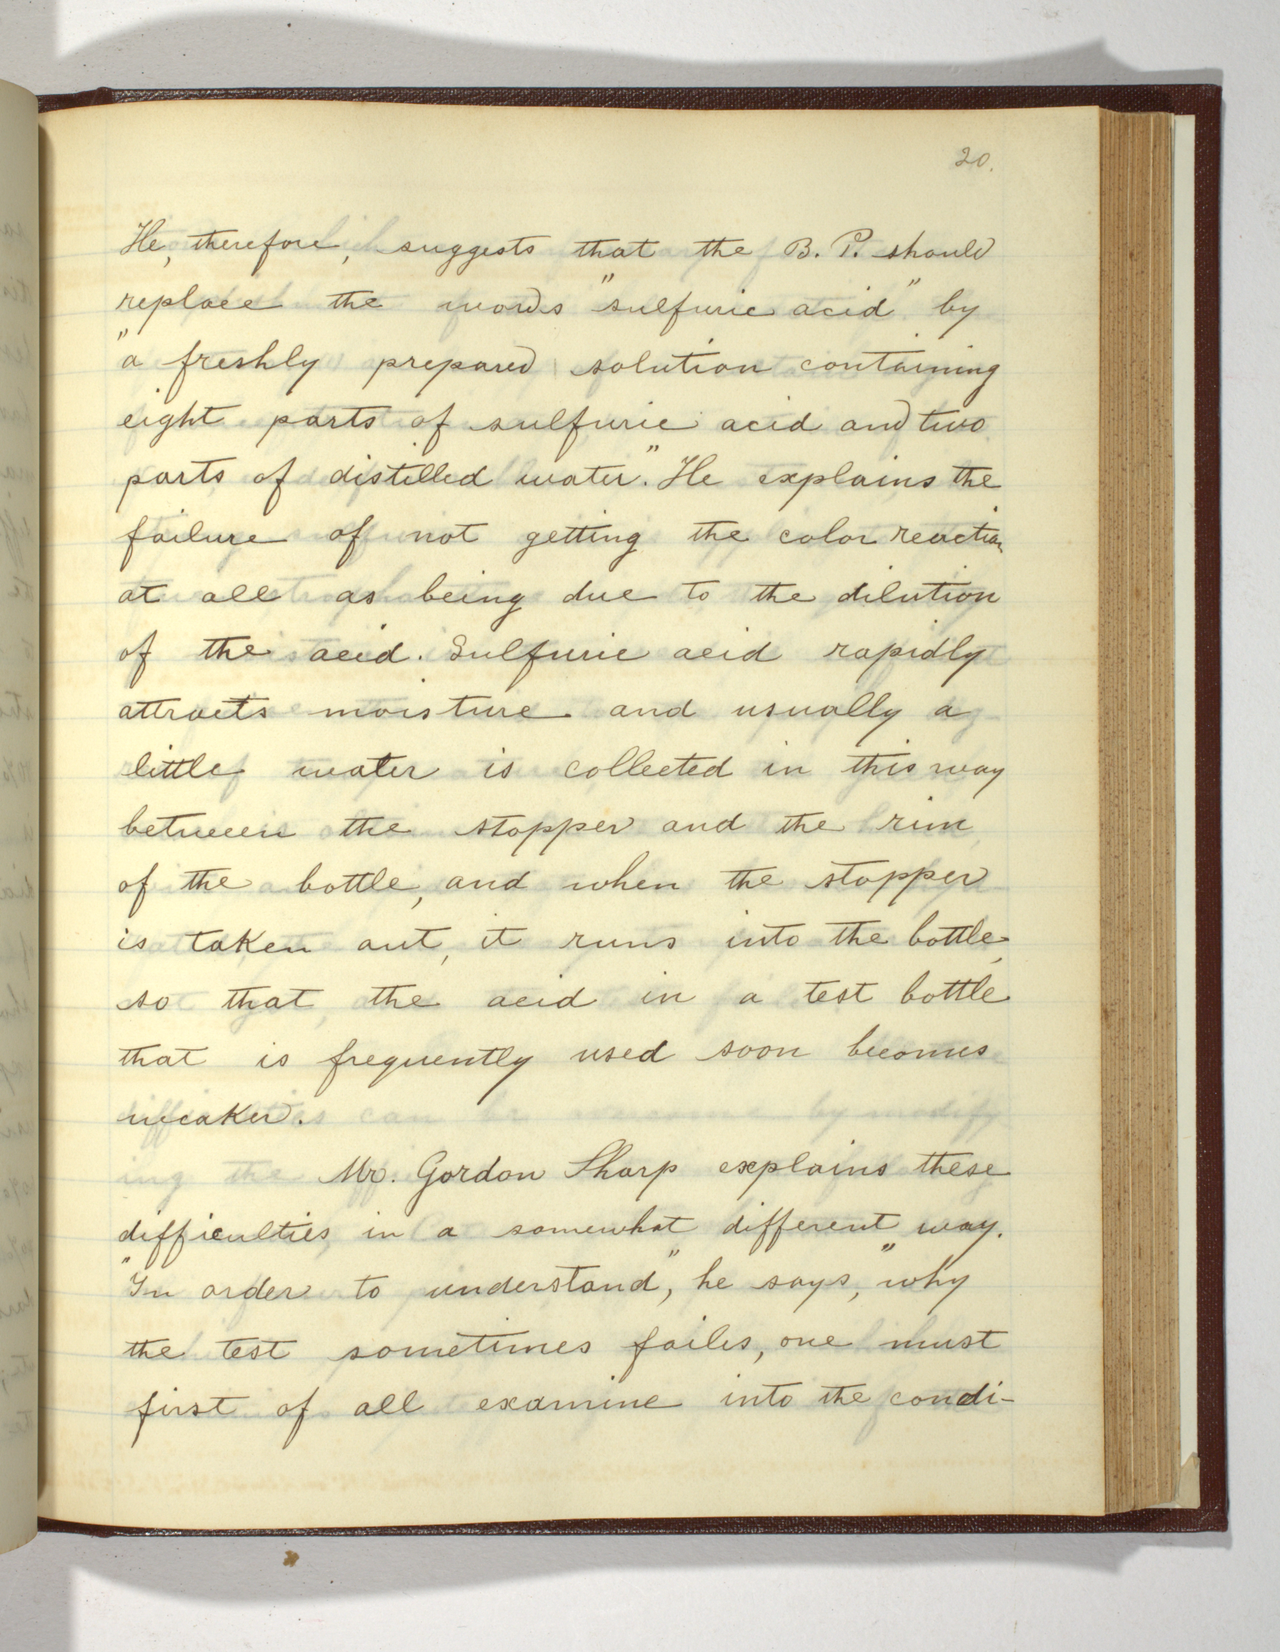 20.
He, therefore, suggests that the B. P. should
replace the words "sulfuric acid" by
"a freshly prepared solution containing
eight parts of sulfuric acid and two
parts of distilled water." He explains the
failure of not getting the color reaction
at all as being due to the dilution
of the acid. Sulfuric acid rapidly
attracts moisture and usually a
little water is collected in this way
between the stopper and the rim
of the bottle, and when the stopper
is taken out, it runs into the bottle,
so that the acid in a test bottle
that is frequently used soon becomes
weaker.
Mr. Gordon Sharp explains these
difficulties in a somewhat different way.
"In order to understand", he says, "why
the test sometimes failes, one must
first of all examine into the condi-